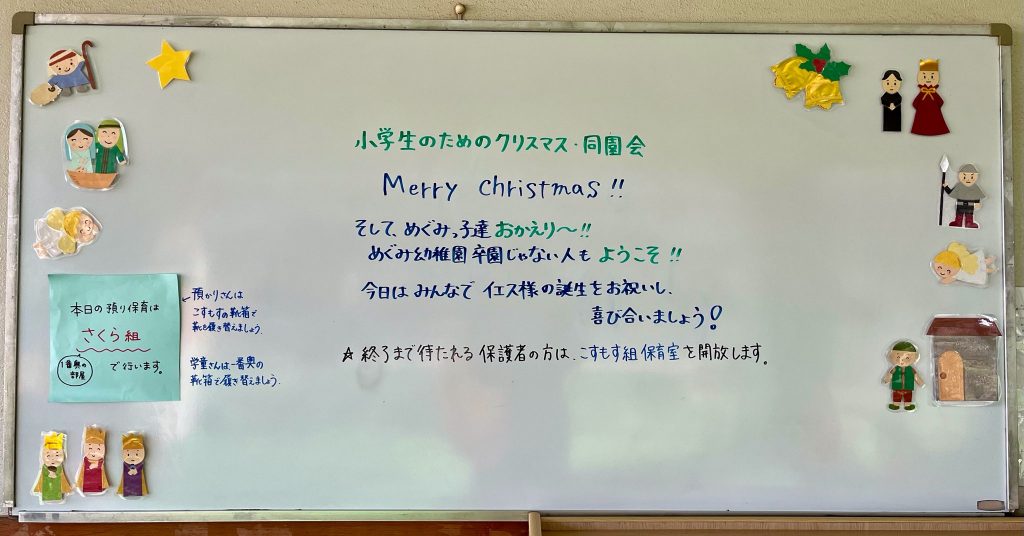 小学生のためのクリスマス・同園会
Merry Christmas!!
そして、めぐみっ子達 おかえり〜!!
めぐみ幼稚園 卒園じゃない人も ようこそ!!
今日は みんなで イエス様の誕生をお祝いし、
喜び合いましょう!
☆ 終了まで待たれる 保護者の方は、こすもす組 保育室を開放します。
本日の預り保育は
さくら組
1番奥の
部屋
で行います。
←預かりさんは
こすもすの靴箱で
靴を履き替えましょう。
学童さんは、一番奥の
靴箱で履き替えましょう。